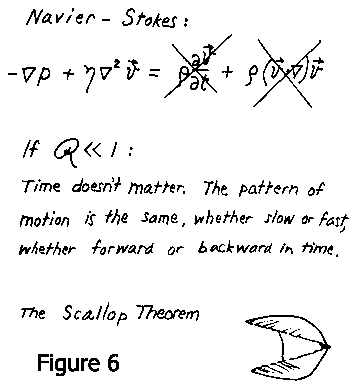 Navier - Stokes :
-∇p + η∇² v⃗ = ρ ∂v⃗/∂t + ρ(v⃗·∇)v⃗
If R << 1 :
Time doesn't matter. The pattern of
motion is the same, whether slow or fast,
whether forward or backward in time.
The Scallop Theorem
Figure 6